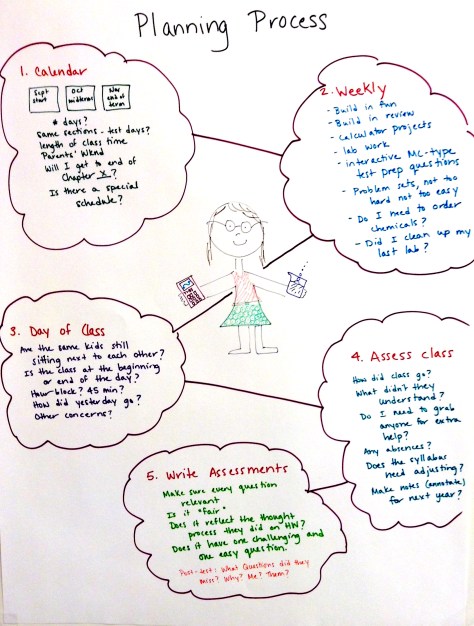 Planning Process
1. Calendar
Sept
start
Oct
midterms
Nov
end of
term
# days?
Same sections - test days?
length of class time
Parents' Wknd
Will I get to end of
Chapter X?
Is there a special
schedule?
2. Weekly
- Build in fun
- Build in review
- Calculator projects
- lab work
- interactive MC-type
test prep questions
- Problem sets, not too
hard not too easy
- Do I need to order
chemicals?
- Did I clean up my
last lab?
3. Day of Class
Are the same kids still
sitting next to each other?
Is the class at the beginning
or end of the day?
Hour block? 45 min?
How did yesterday go?
Other concerns?
4. Assess class
How did class go?
What didn't they
understand?
Do I need to grab
anyone for extra
help?
Any absences?
Does the syllabus
need adjusting?
Make notes (annotate)
for next year?
5. Write Assessments
Make sure every question
relevant
Is it "fair"
Does it reflect the thought
process they did on HW?
Does it have one challenging and
one easy question.
Post-test: What Questions did they
miss? Why? Me? Them?